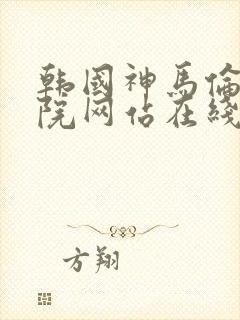 韩國神馬倫
院网佔在綫
方翔